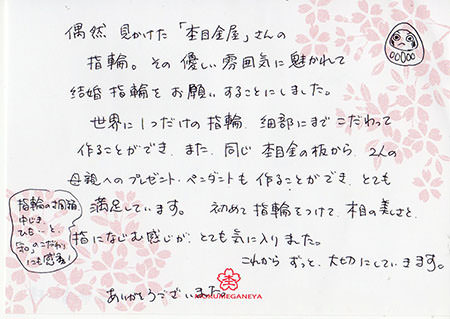 偶然 見かけた「杢目金屋」さんの
指輪。その優しい雰囲気に魅かれて
結婚指輪をお願いすることにしました。
世界に1つだけの指輪、細部にまでこだわって
作ることができ、また、同じ杢目金の板から、2人の
母親へのプレゼント・ペンダントも作ることができ、とても
満足しています。初めて指輪をつけて、木目の美しさと、
指になじむ感じが、とても気に入りました。
これからずっと、大切にしていきます。
ありがとうございました。
指輪の
ひも…と、
"和"のこだわり
にも感激!
MOKUMEGANEYA